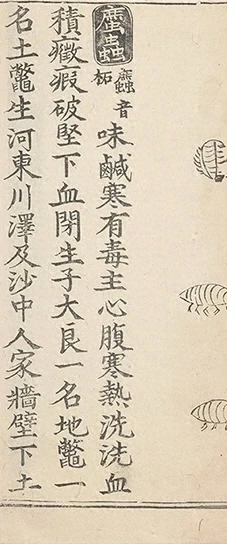 䗪蟲 䗪音柘 味鹹寒有毒主心腹寒熱洗洗血
積癥瘕破堅下血閉生子大良一名地鼈一
名土鼈生河東川澤及沙中人家牆壁下土